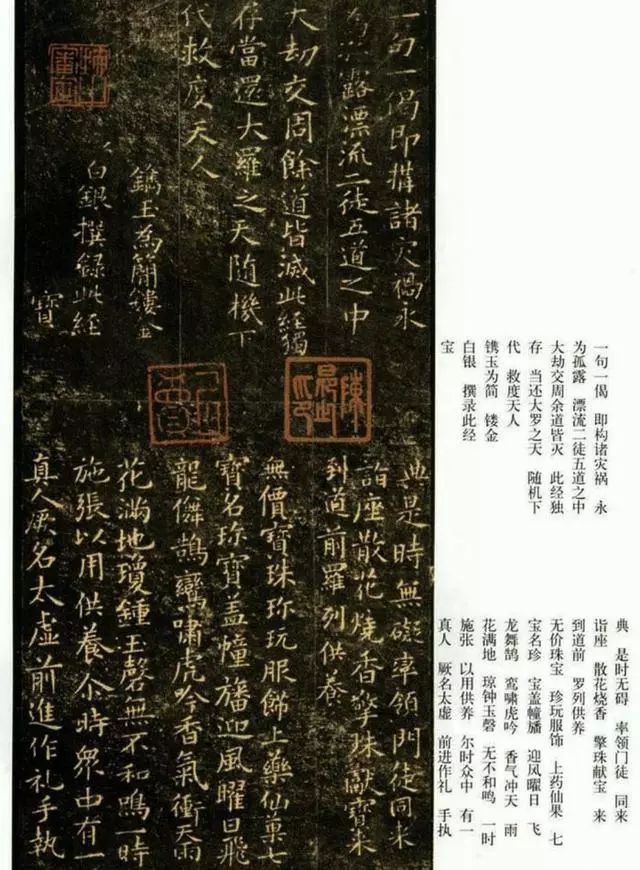 一句一偈即搆諸灾禍永
為孤露漂流二徒五道之中
大劫交周餘道皆滅此經獨
存當還大羅之天隨機下
代救度天人
鐫玉為簡鏤金
白銀撰録此經
寶
典是時無礙率領門徒同来
詣座散花燒香擎珠獻寶来
到道前羅列供養
無價寶珠珎玩服飾上藥仙菓七
寶名珎寶盖幢旛迎風曜日飛
龍儛鵠鸞嘯虎吟香氣衝天雨
花滿地瓊鍾玉磬無不和鳴一時
施張以用供養尒時衆中有一
真人厥名太虛前進作礼手執
一句一偈 即构诸灾祸 永
为孤露 漂流二徒五道之中
大劫交周余道皆灭 此经独
存 当还大罗之天 随机下
代 救度天人
镌玉为简 镂金
白银 撰录此经
宝
典 是时无碍 率领门徒 同来
诣座 散花烧香 擎珠献宝 来
到道前 罗列供养
无价珠宝 珍玩服饰 上药仙果 七
宝名珍 宝盖幢旛 迎风曜日 飞
龙舞鹄 鸾啸虎吟 香气冲天 雨
花满地 琼钟玉磬 无不和鸣 一时
施张 以用供养 尔时众中 有一
真人 厥名太虚 前进作礼 手执